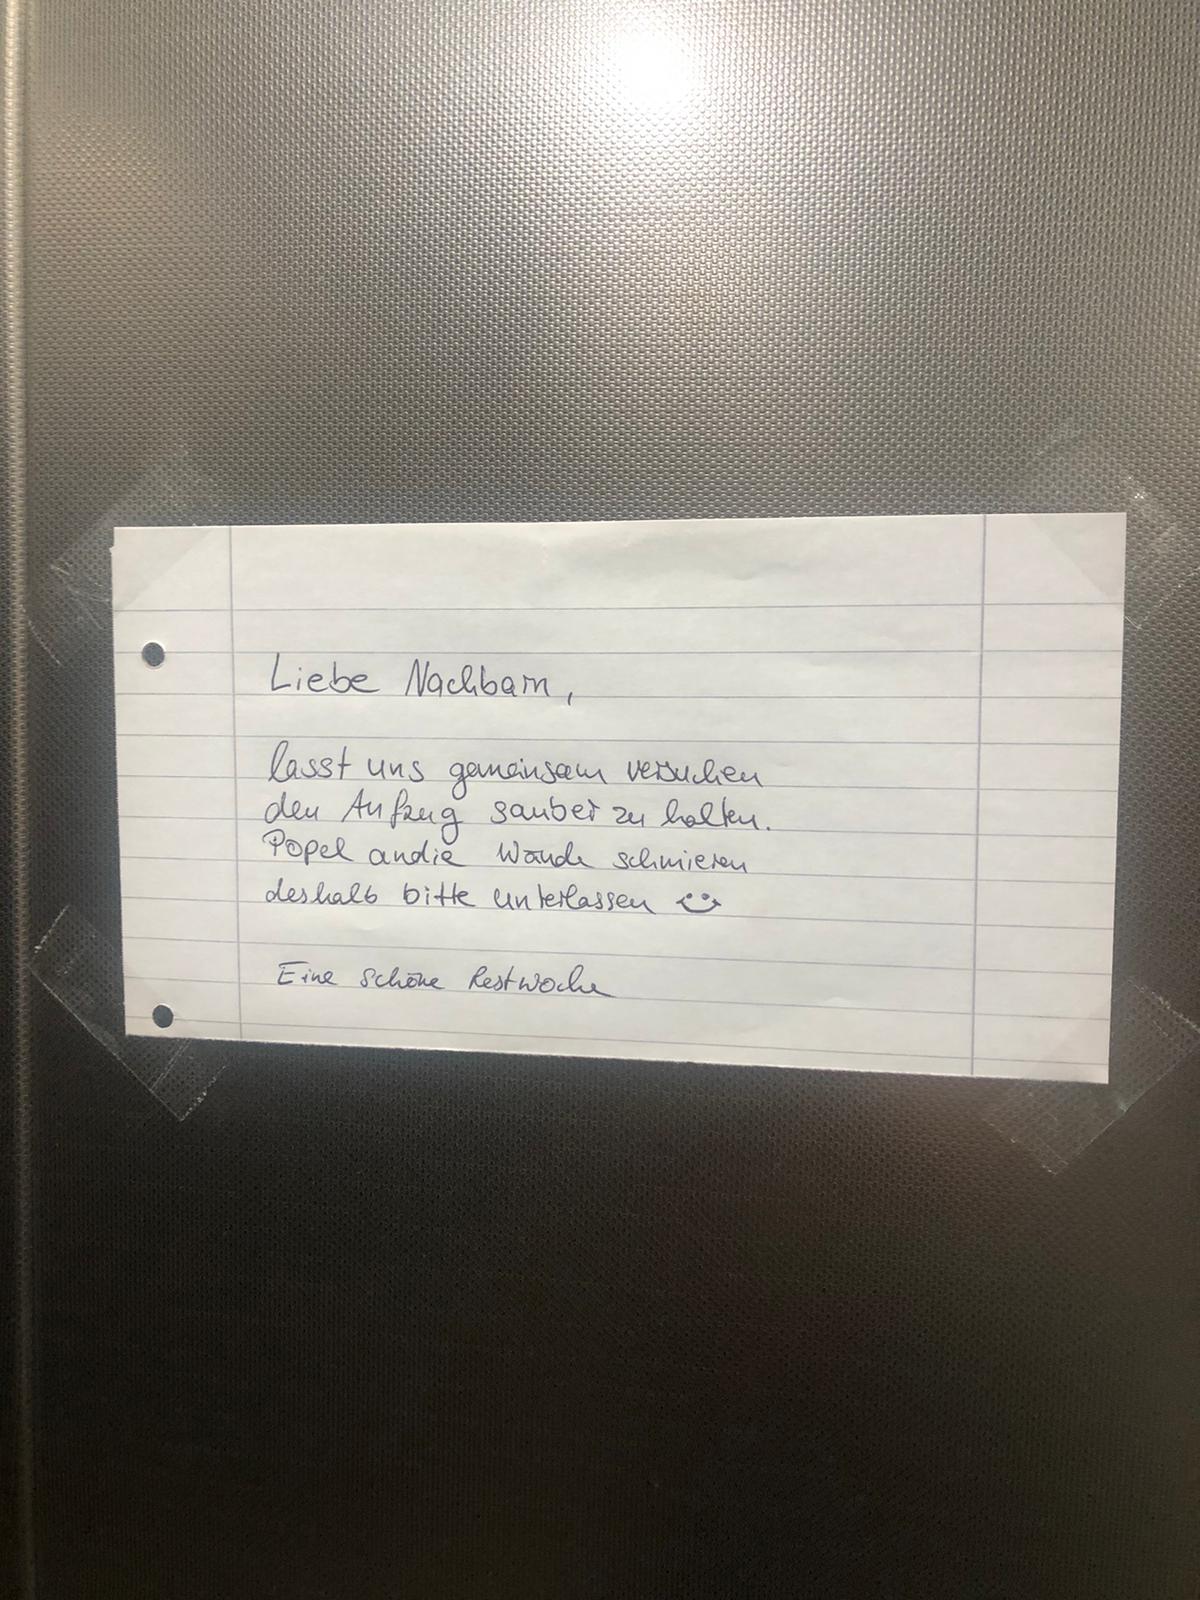 Liebe Nachbarn,
lasst uns gemeinsam versuchen
den Aufzug sauber zu halten.
Popel an die Wände schmieren
deshalb bitte unterlassen ☺
Eine schöne Restwoche